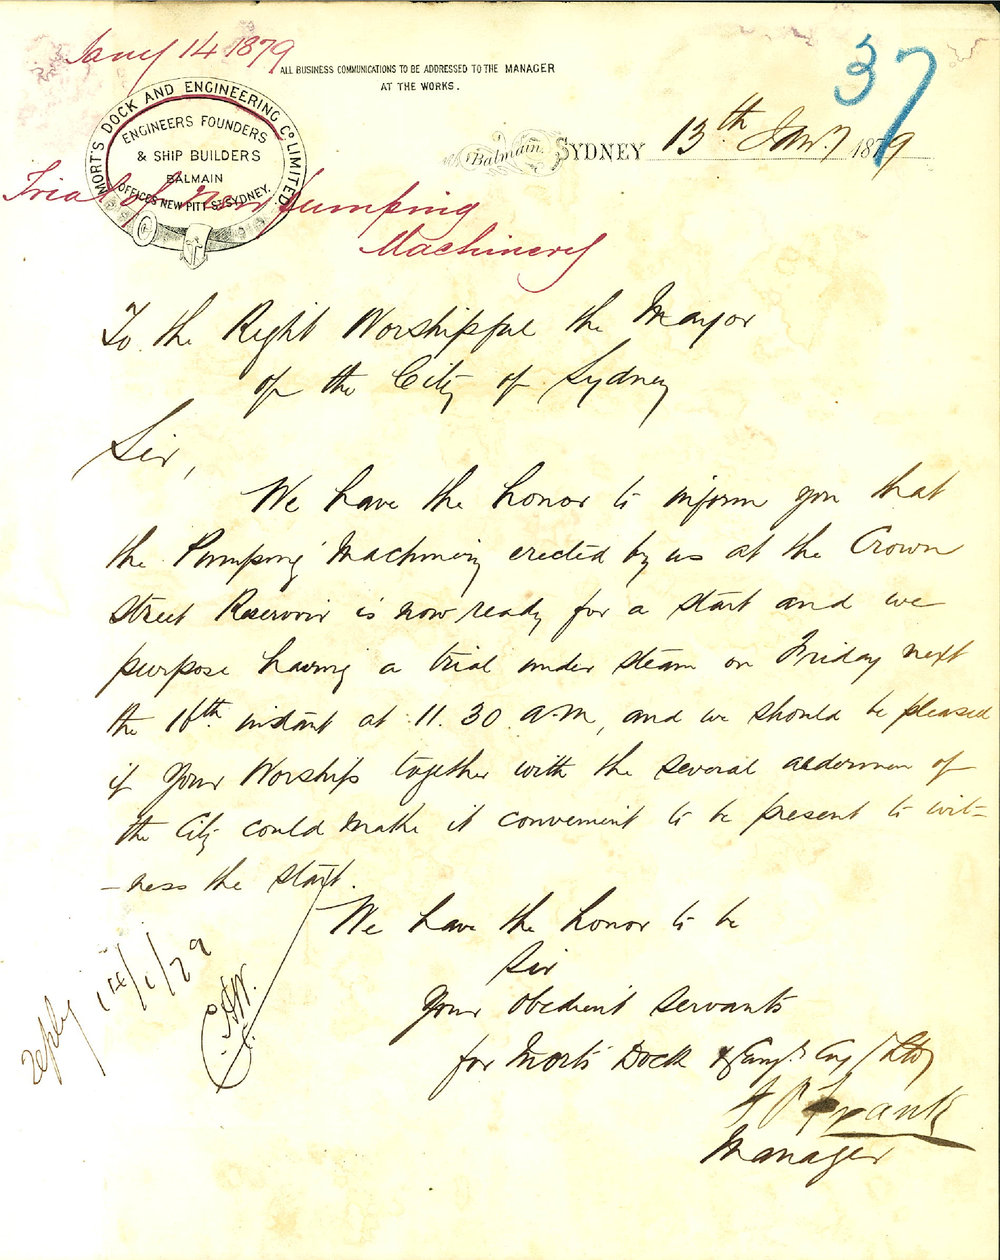 Jany 14 1879
37
ALL BUSINESS COMMUNICATIONS TO BE ADDRESSED TO THE MANAGER
AT THE WORKS.
MORT'S DOCK AND ENGINEERING Co LIMITED.
ENGINEERS FOUNDERS
& SHIP BUILDERS
BALMAIN
OFFICES NEW PITT ST SYDNEY.
Balmain. SYDNEY 13th Jany 1879
Trial of new Pumping
Machinery
To the Right Worshipful the Mayor
of the City of Sydney
Sir,
We have the honor to inform you that
the Pumping Machinery erected by us at the Crown
Street Reservoir is now ready for a start and we
purpose having a trial under steam on Friday next
the 16th instant at 11.30 a.m, and we should be pleased
if your Worship together with the several aldermen of
the City could make it convenient to be present to wit-
-ness the start.
We have the honor to be
Sir
Your Obedient Servants
for Morts Dock & Engg Coy Ltd
Franki
Manager
reply 14/1/79